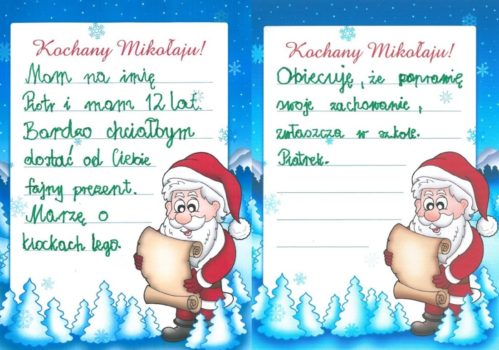 Kochany Mikołaju!
Mam na imię
Piotr i mam 12 lat.
Bardzo chciałbym
dostać od Ciebie
fajny prezent.
Marzę o
klockach lego.
Kochany Mikołaju!
Obiecuję, że poprawię
swoje zachowanie,
zwłaszcza w szkole.
Piotrek.